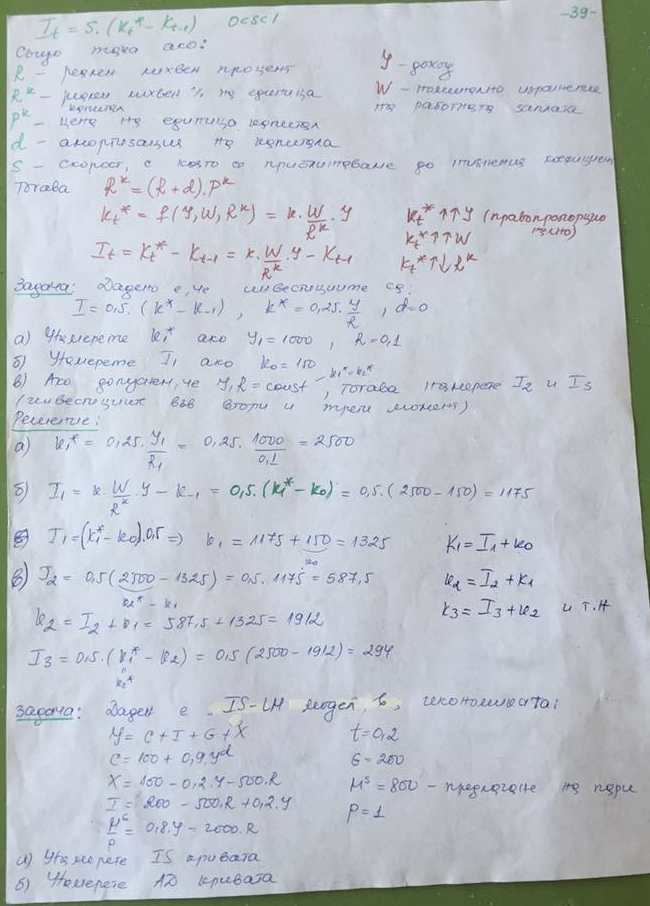 -39-
I_t = s.(k_t* - K_{t-1}) 0≤s≤1
Също така ако:
R - реален лихвен процент
Y - доход
R^k - реален лихвен % на единица капитал
W - номинално изражение на работната заплата
P^k - цена на единица капитал
d - амортизация на капитала
s - скорост, с която се приближаваме до
Тогава R^k = (R + d).P^k
k_t* = f(Y, W, R^k) = k. W/R^k . Y
k_t* ↑↑ Y (правопропорционално)
k_t* ↑↑ W
I_t = K_t* - K_{t-1} = k. W/R^k . Y - K_{t-1}
k_t* ↑↓ R^k
Задача: Дадено е, че инвестициите са:
I = 0,5.(k* - k_{-1}), k* = 0,25. Y/R, d=0
а) Намерете k_1* ако Y_1 = 1000, R = 0,1
б) Намерете I_1 ако k_0 = 150
в) Ако допуснем, че Y, R = const - k_1* = k_2*, тогава намерете I_2 и I_3
(инвестиции във втори и трети момент)
Решение:
а) k_1* = 0,25. Y_1/R_1 = 0,25. 1000/0,1 = 2500
б) I_1 = k. W/R^k . Y - k_{-1} = 0,5.(k_1* - k_0) = 0,5.(2500 - 150) = 1175
I_1 = (k_1* - k_0).0,5 => k_1 = 1175 + 150 = 1325
k_0
K_1 = I_1 + k_0
в) I_2 = 0,5(2500 - 1325) = 0,5. 1175 = 587,5
k_2* - k_1
k_2 = I_2 + k_1
k_2 = I_2 + k_1 = 587,5 + 1325 = 1912
k_3 = I_3 + k_2 и т.н
I_3 = 0,5.(k_1* - k_2) = 0,5(2500 - 1912) = 294
"
k_2*
Задача: Даден е IS-LM модел в икономиката:
Y = C + I + G + X
t = 0,2
C = 100 + 0,9.Y^d
G = 200
X = 100 - 0,2.Y - 500.R
M^s = 800 - предлагане на пари
I = 200 - 500.R + 0,2.Y
P = 1
= 0,8.Y - 2000.R
а) Намерете IS кривата
б) Намерете AD кривата